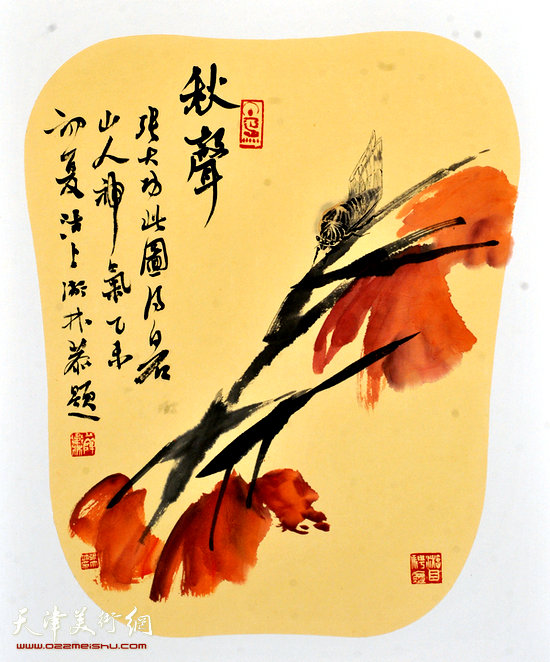 秋聲
張大功此圖得白石
山人神氣乙未
初夏沽上恭題
天津美術網
www.022meishu.com